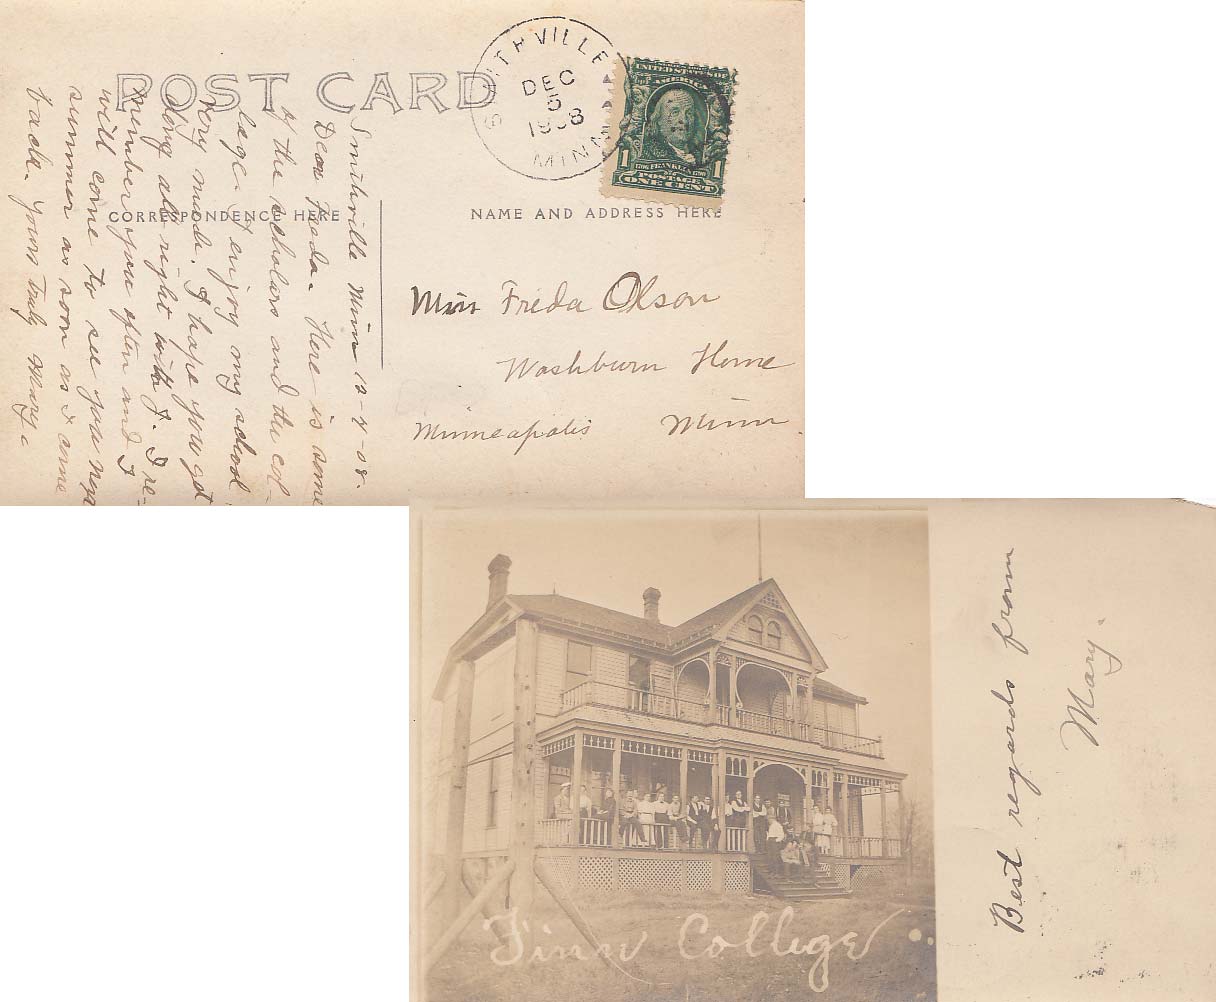 POST CARD
SMITHVILLE
DEC
5
1908
MINN
UNITED STATES OF
AMERICA
1 1706 FRANKLIN 1790 1
POSTAGE
ONE CENT
CORRESPONDENCE HERE
NAME AND ADDRESS HERE
Smithville Minn 12-4-08.
Dear Freda. Here is some
of the scholars and the col-
lege. I enjoy my school
very much. I hope you get
along all right with J. I re-
member you often and I
will come to see you next
summer as soon as I come
back. Yours Truly Mary.
Miss Frida Olson
Washburn Home
Minneapolis Minn.
Finn College
Best regards from
Mary.